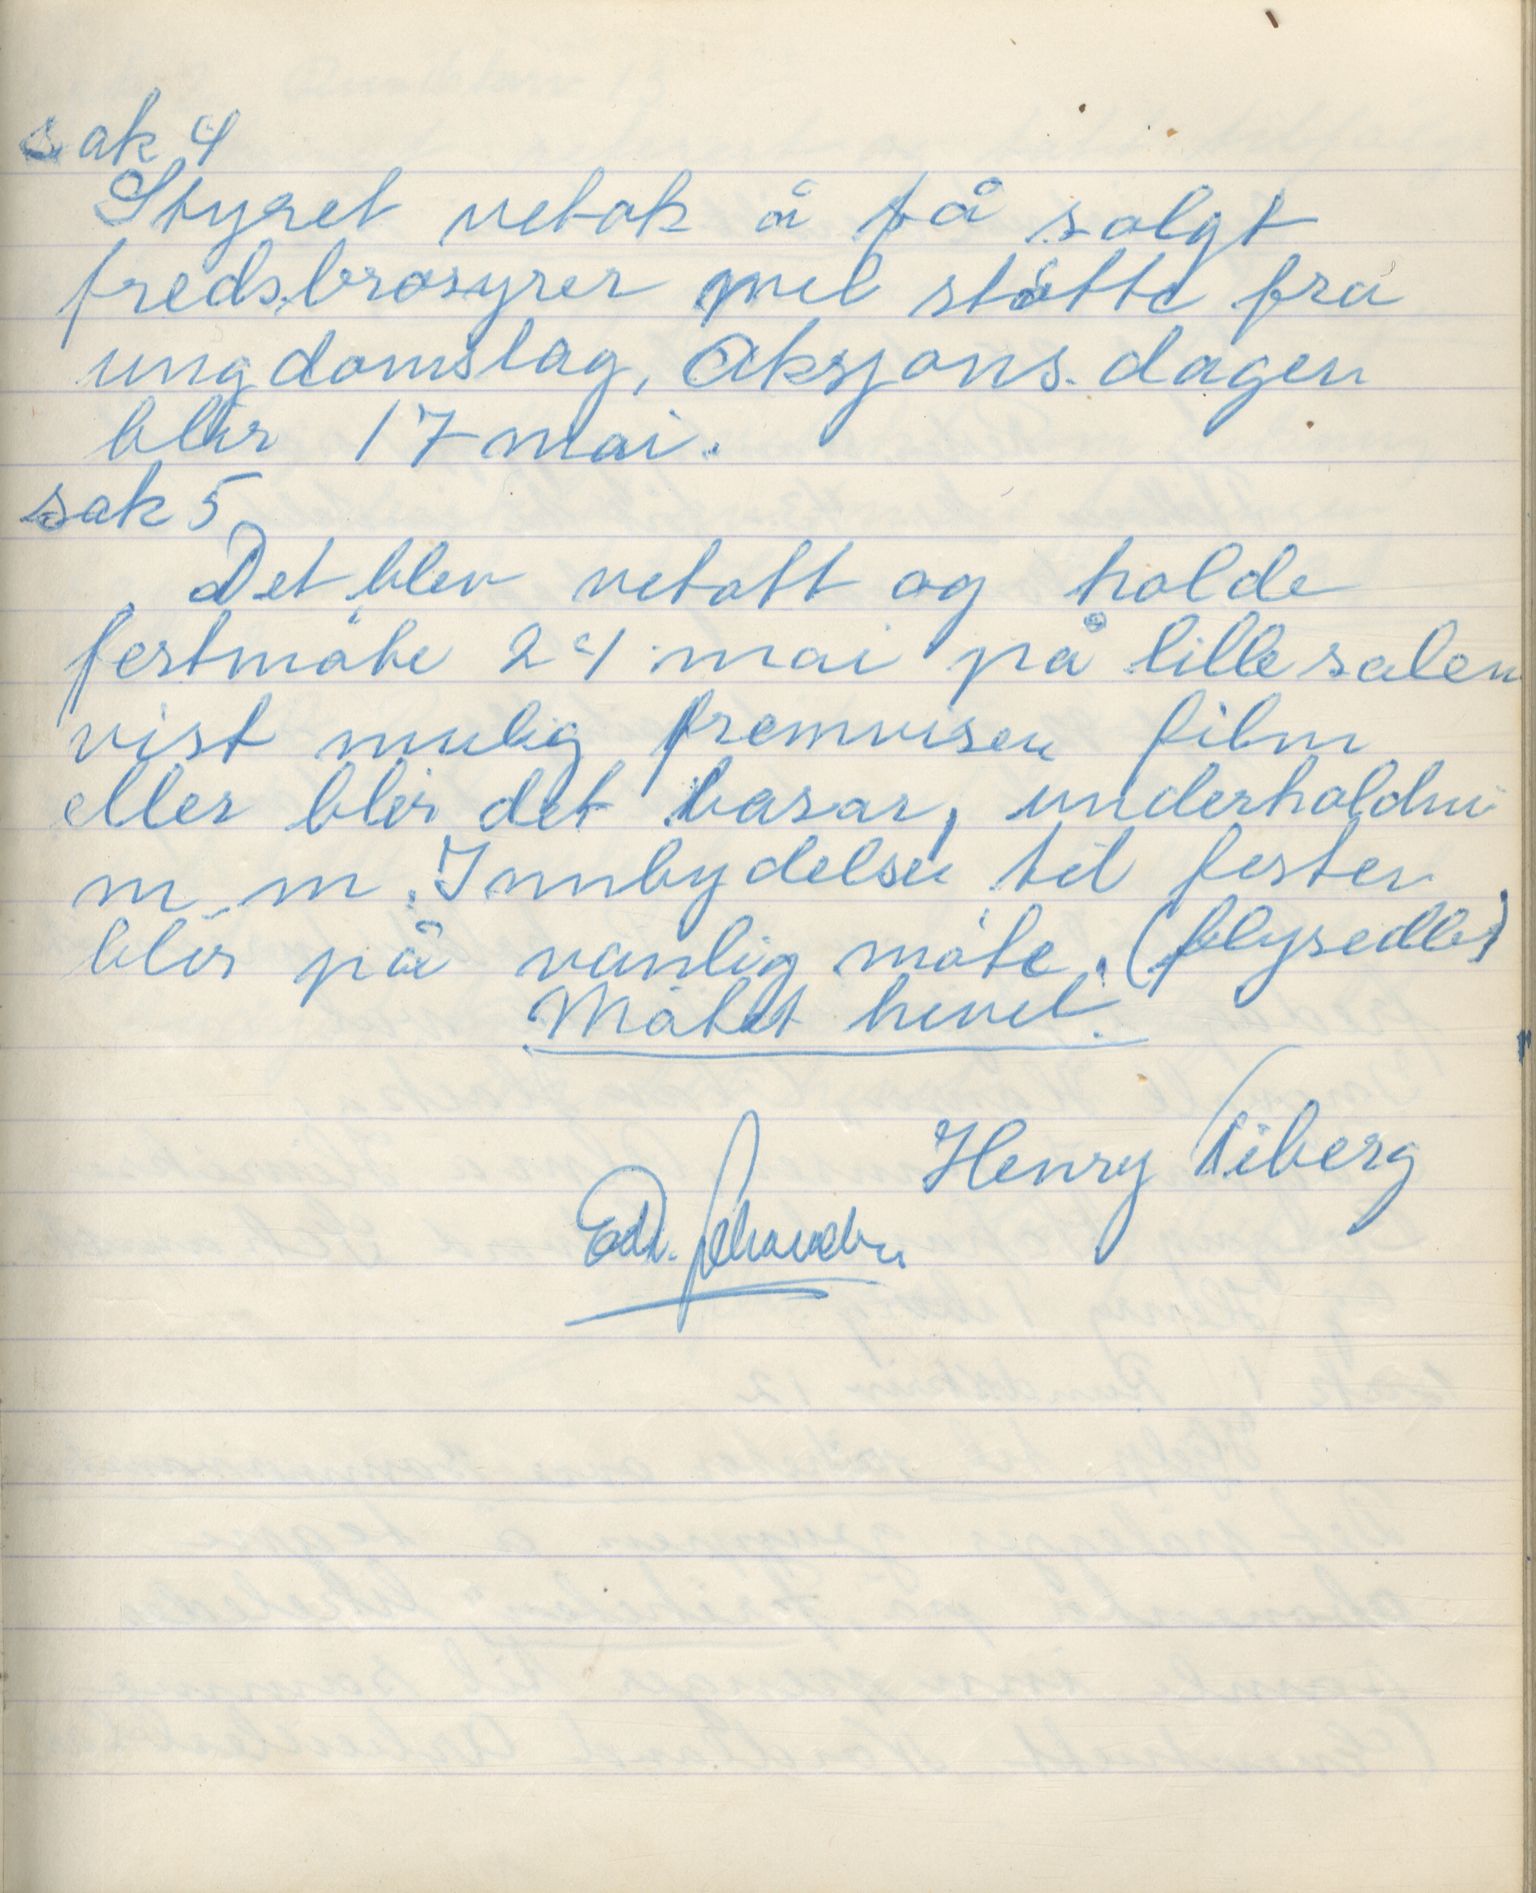 sak 4
Styret vetok å få solgt
fredsbrosyrer med støtte fra
ungdomslag, Aksjons.dagen
blir 17 mai.
sak 5
Det blev vetatt og holde
festmøte 24 mai på lille salen
vist mulig fremvisen film
eller blir det basar, underholdni
m.m. Innbydelsen til festen
blir på vanlig måte. (flysedler)
Møtet hevet.
Henry Viberg
Edv.